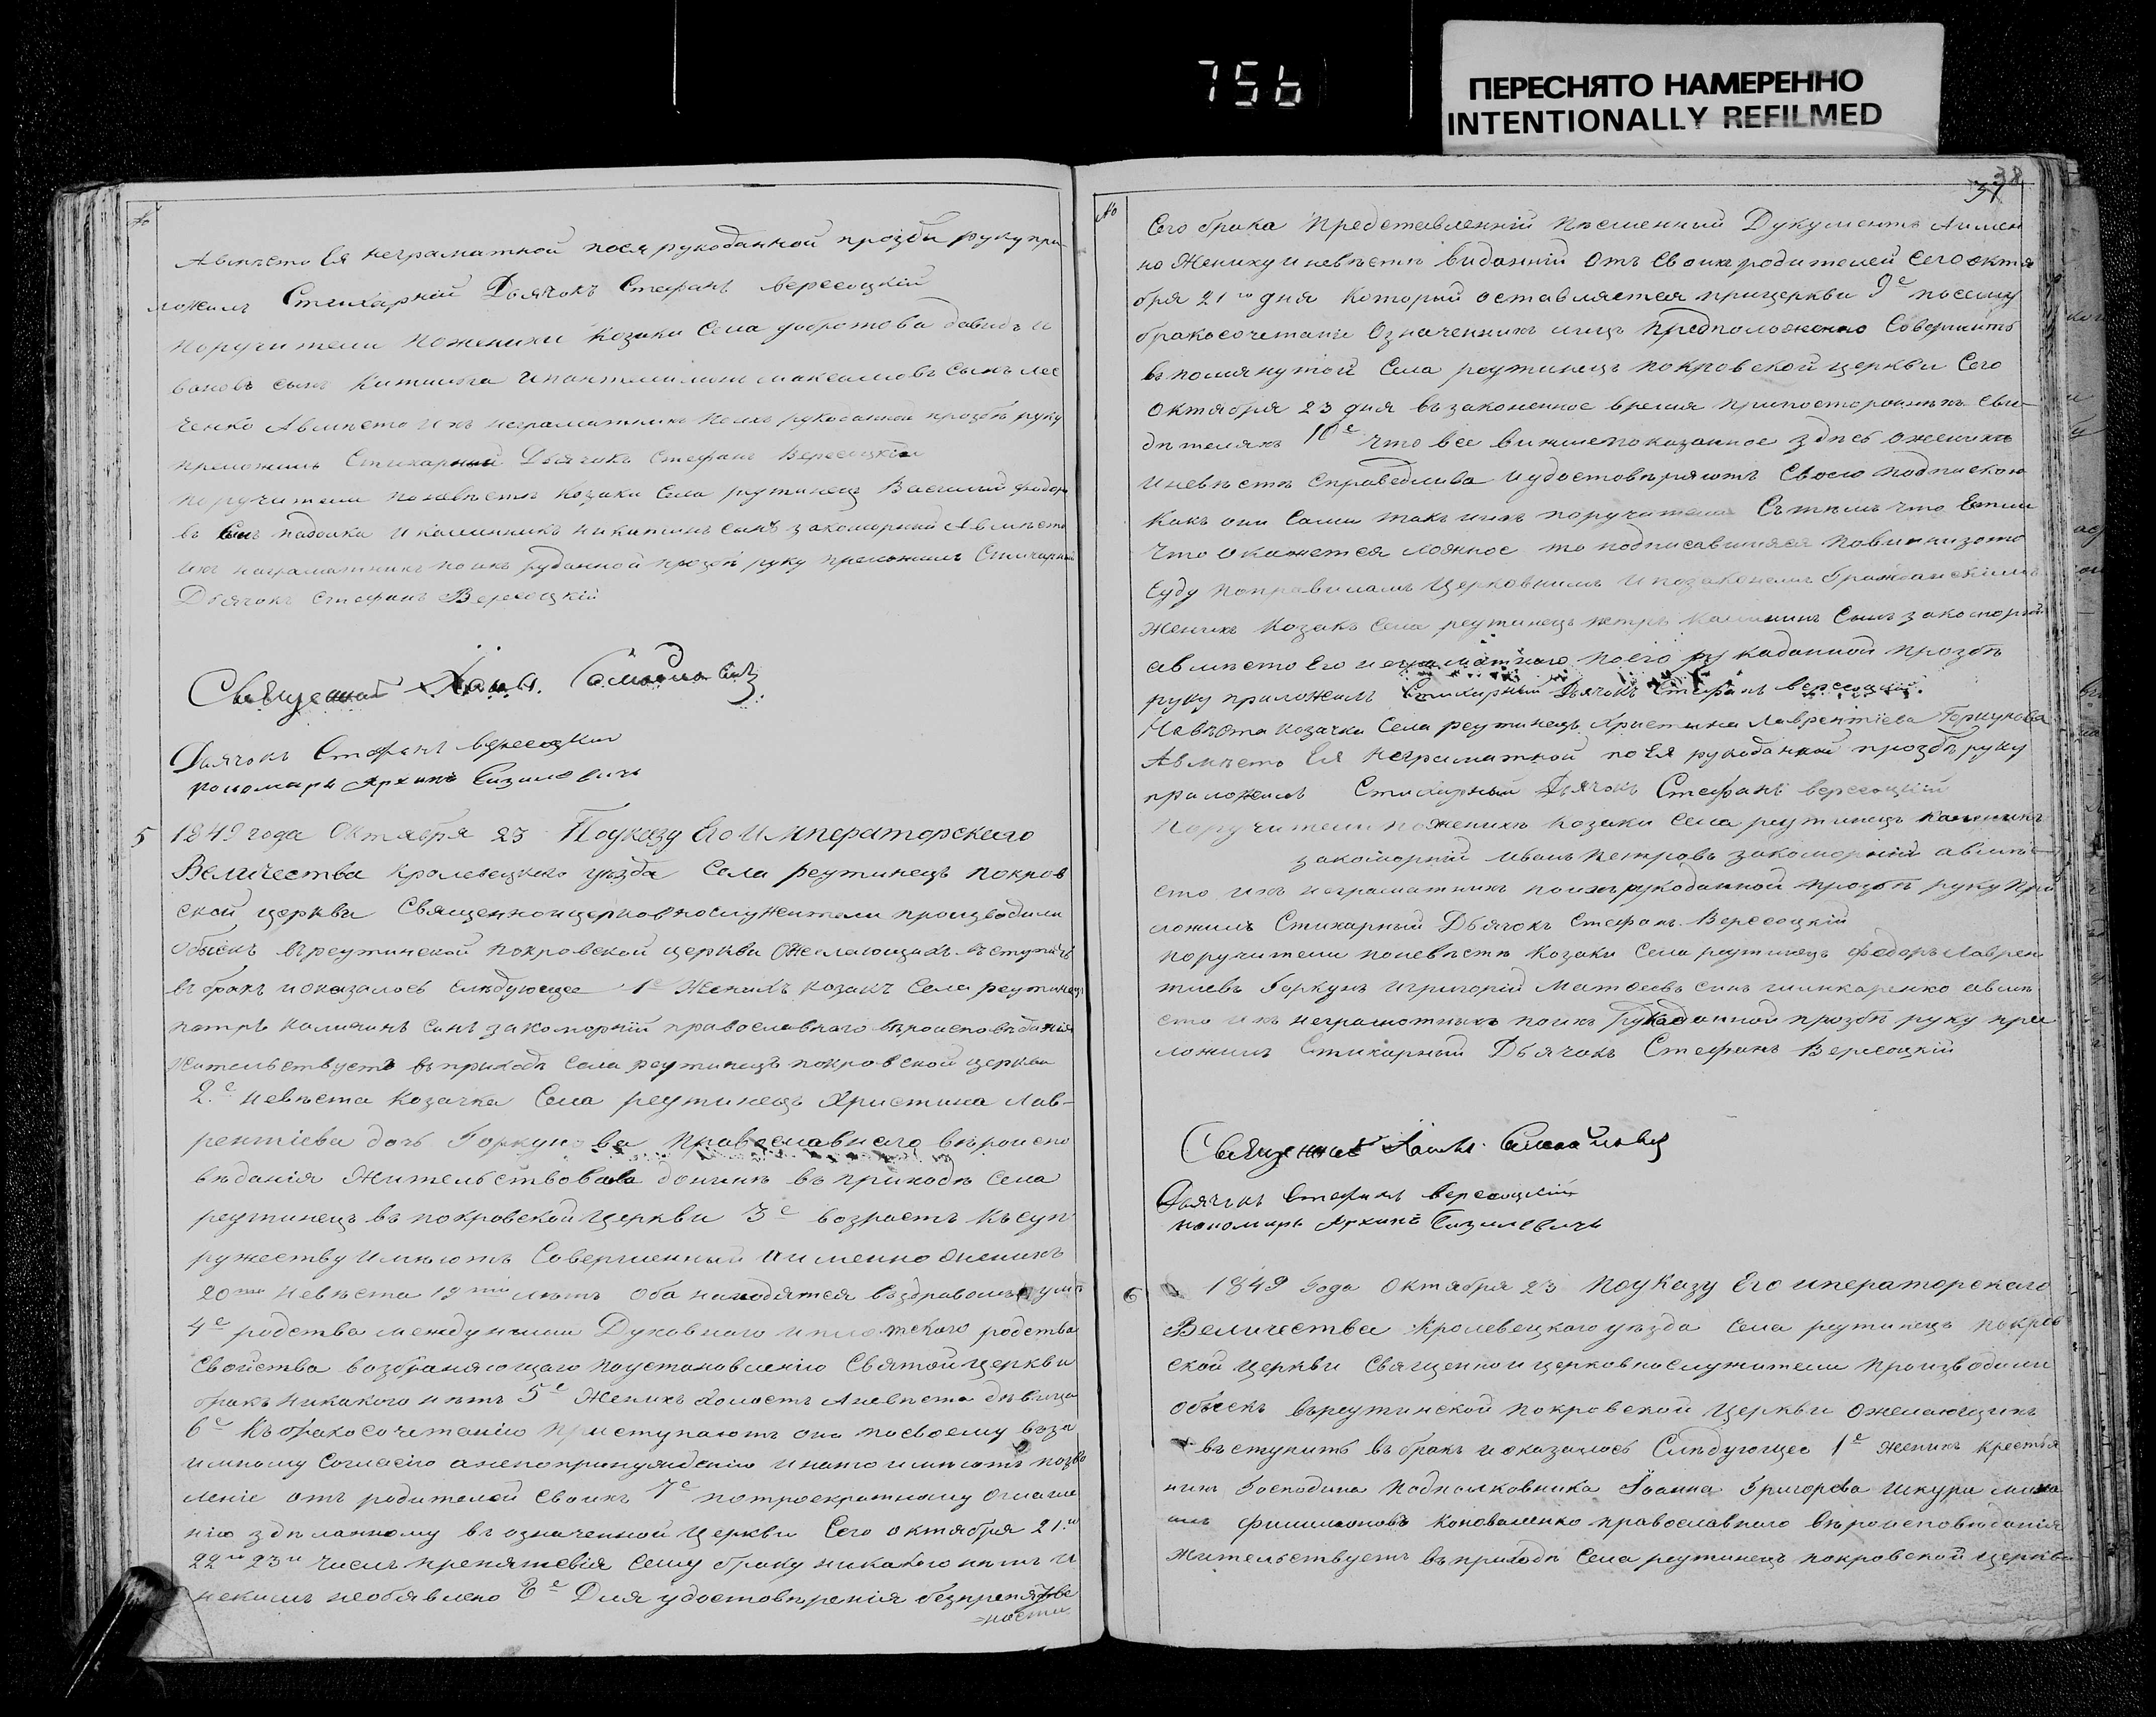 756
ПЕРЕСНЯТО НАМЕРЕННО
INTENTIONALLY REFILMED
№
Авмѣсто Ея неграматной поея рукоданной прозбы руку при-
ложилъ Стихарній Дьячокъ Стефанъ Вересоцкій
Поручители пожениху козаки Села добротова давидъ и
вановъ сынъ ипантелимонъ максимовъ Сынъ лес
ченко Авмѣсто ихъ неграматнихъ поихъ рукоданной прозбѣ руку
приложилъ Стихарный Дьячокъ Стефанъ Вересоцкій
поручители поневѣстѣ козаки Села рутинецъ Василий федоро
въ Сынъ падалка икалинникъ никитинъ сынъ закоморный Авмѣсто
ихъ неграматнихъ поихъ руданной прозбѣ руку приложилъ Стихарный
Дьячокъ Стефанъ Вересоцкій
Священикъ
Дьячокъ Стефанъ Вересоцкій
пономарь Архипъ
5 1849 года Октября 23 Поуказу Его Императорскаго
Величества Кролевецкаго уезда Села реутинецъ покров
ской церкви Священноицерковнослужители производили
обыскъ въреутинской покровской церкви Ожелающихъ въступить
въ бракъ иоказалось слѣдующее 1е Женихъ козакъ Села реутинецъ
петръ калининъ синъ закоморній православнаго вѣроисповѣданія
Жительствуетъ въ приходѣ Села реутинецъ покровской церкви
2.е невѣста козачка Села реутинецъ Христина Лав-
рентіева дочь Горкунова Православнаго вѣроиспо
вѣданія Жительствовала донинѣ въ приходѣ Села
реутинецъ въ покровской церкви 3е возрастъ къ суп
ружеству имѣютъ Совершенный аименно женихъ
20 невѣста 19 лѣтъ оба находятся въздравомъ умѣ
4е родства междуними Духовнаго иплотскаго родства
Свойства возбраняющаго поустановленію Святой церкви
бракъ никакого нѣтъ 5е Женихъ холостъ Аневѣста дѣвица
6е Къ бракосочетанію приступаютъ они посвоему взаи
имному Согласію анепопринужденію инато имѣютъ позво
леніе отъ родителей своихъ 7е потроекратному оглаше
нію здѣланному въ означенной церкви Сего октября 21го
22го 23го числъ препятствія Сему браку никакого нѣтъ и
никимъ необявлено 8е Для удостовѣренія безпрепятстве
=ности
38
37
№
Сего брака Представленній Писменный Дукументъ Аимен
но Жениху иневѣстѣ виданній отъ Своихъ родителей Сего октя
бря 21го дня который оставляется прицеркви 9е посему
бракосочетаніе Означеннихъ лицъ предположенно Совершить
въ помянутой Села реутинецъ покровской церкви Сего
Октября 23 дня въ законенное время припостороннихъ сви-
дѣтеляхъ 10е что все вишепоказанное здѣсь ожениху
иневѣстѣ справедлива иудостовѣряютъ Своею подпискою
Какъ они Сами такъ иихъ поручители Сътѣмъ что Ежели
что окажется ложное то подписавшіяся повинни зато
Суду поправиламъ Церковнимъ ипозаконамъ Гражданскимъ
Женихъ козакъ Села реутинецъ петръ калининъ Синъ закоморный
авмѣсто Его неграматнаго поего рукаданной прозбѣ
руку приложилъ Стихарный Дьячокъ Стефанъ Вересоцкій.
Невѣста козачка Села реутинецъ Христина Лаврентіева Горкунова
Авмѣсто Ея неграматной поЕя рукоданной прозбѣ руку
приложилъ Стихарный Дьячокъ Стефанъ вересоцкій
Поручители поженихѣ козаки Села реутинецъ калиникъ
закоморній иванъ петровъ закоморній авмѣ-
сто ихъ неграматнихъ поихърукоданной прозбѣ руку при
ложилъ Стихарный Дьячокъ Стефанъ Вересоцкій
поручители поневѣстѣ козаки Села реутинецъ федоръ Лаврен
тиевъ Горкунъ игригорій Матвѣевъ синъ шинкаренко авмѣ
сто ихъ неграмотныхъ поихъ рукоданной прозбѣ руку при
ложилъ Стихарный Дьячокъ Стефанъ Вересоцкій
Священикъ
Дьячокъ Стефанъ Вересоцкій
пономарь Архипъ
6 1849 Года Октября 23 Поуказу Его императорскаго
Величества Кролевецкаго уѣзда Села реутинецъ покров
ской церкви Священно и церковнослужители производили
обыскъ въреутинской покровской церкви ожелающихъ
въступить въ бракъ иоказалось Слѣдующее 1е женихъ крестья
нинъ Господина Подполковника Іоанна Григорева Шкури миха
илъ филимоновъ коноваленко православнаго вѣроисповѣданія
Жительствуетъ въ приходѣ Села реутинецъ покровской церкви